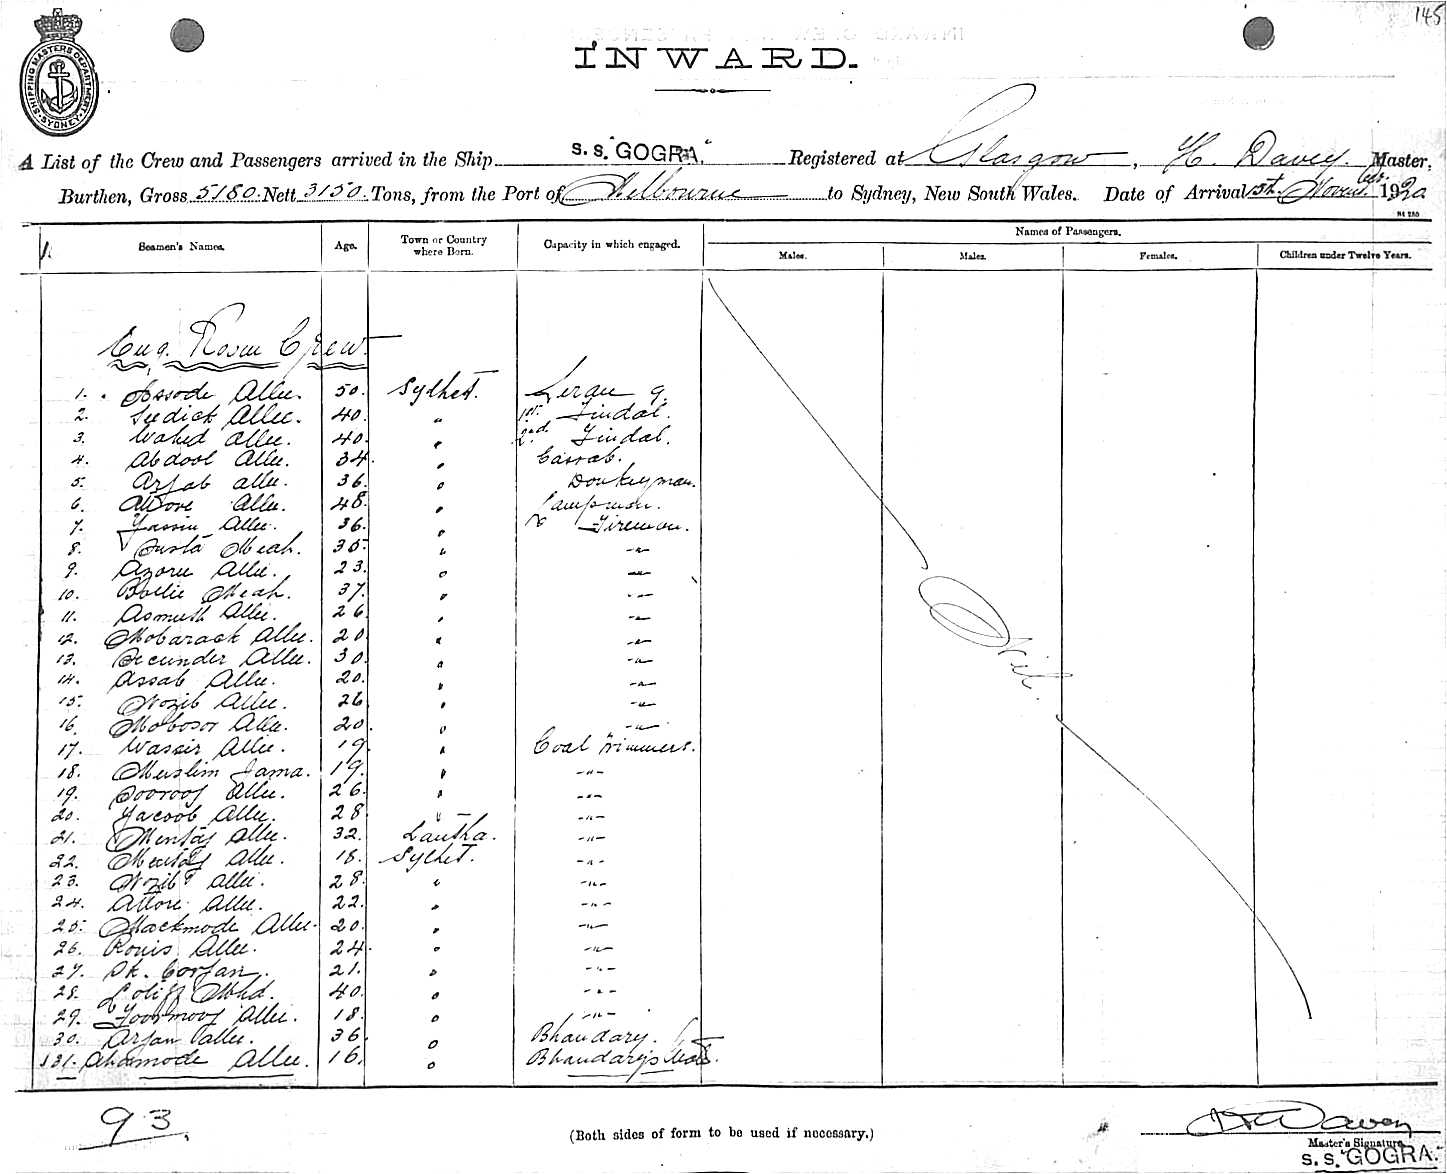 145
SHIPPING MASTERS DEPARTMENT
SYDNEY
INWARD.
A List of the Crew and Passengers arrived in the Ship S.S. "GOGRA." Registered at Glasgow, H. Davey. Master,
Burthen, Gross 5180. Nett 3150. Tons, from the Port of Melbourne to Sydney, New South Wales. Date of Arrival 1920
Seamen's Names. Age. Town or Country where Born. Capacity in which engaged. Names of Passengers.
Males. Males. Females. Children under Twelve Years.
Eng. Room Crew.
1. Assode Allee. 50. Sylhet. Serang.
2. Seedick Allee. 40. " 1st. Tindal.
3. Wahed Allee. 40. " 2nd. Tindal.
4. Abdool Allee. 34. " Cassab.
5. Arjab allee. 36. " Donkeyman.
6. Allee. 48. " Lampman.
7. Yassin Allee. 36. " Firemen.
8. Meah. 35. " -"-
9. Allee. 23. " -"-
10. Meah. 37. " -"-
11. Allee. 26. " -"-
12. Mobarack Allee. 20. " -"-
13. Secunder Allee. 30. " -"-
14. Assab Allee. 20. " -"-
15. Nozib Allee. 26 " -"-
16. Mobosor Allee. 20 " -"-
17. Wassir Allee. 19 " Coal Trimmers.
18. Muslim Jama. 19. " -"-
19. Allee. 26. " -"-
20. Yacoob Allee. 28 " -"-
21. Allee. 32. -"-
22. Allee. 18. Sylhet. -"-
23. Nozib Allee. 28. " -"-
24. Attore Allee. 22. " -"-
25. Mackmode Allee. 20. " -"-
26. Rouis Allee. 24. " -"-
27. Sk. Corjan. 21. " -"-
28. Mhd. 40. " -"-
29. Allee. 18. " -"-
30. Arjan Vallee. 36. " Bhandary.
31. Ahamode Allee. 16. " Bhandary's Mate.
Nil.
93
(Both sides of form to be used if necessary.)
H Davey
Master's Signature
S.S. "GOGRA."